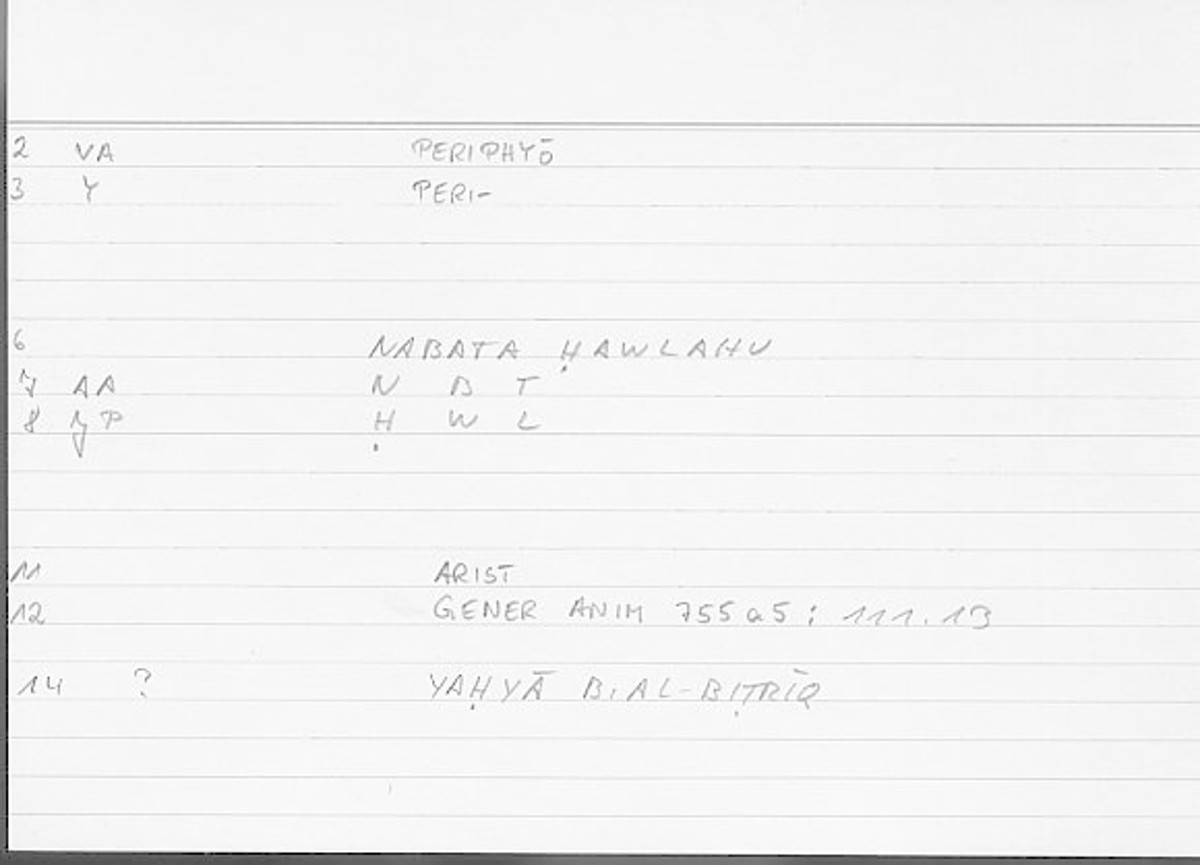 2 VA PERIPHYŌ
3 Y PERI-
6 NABATA ḤAWLAHU
7 AA N B T
8 P Ḥ W L
11 ARIST
12 GENER ANIM 755a5 ; 111.13
14 ? YAḤYĀ B. AL-BIṬRĪQ